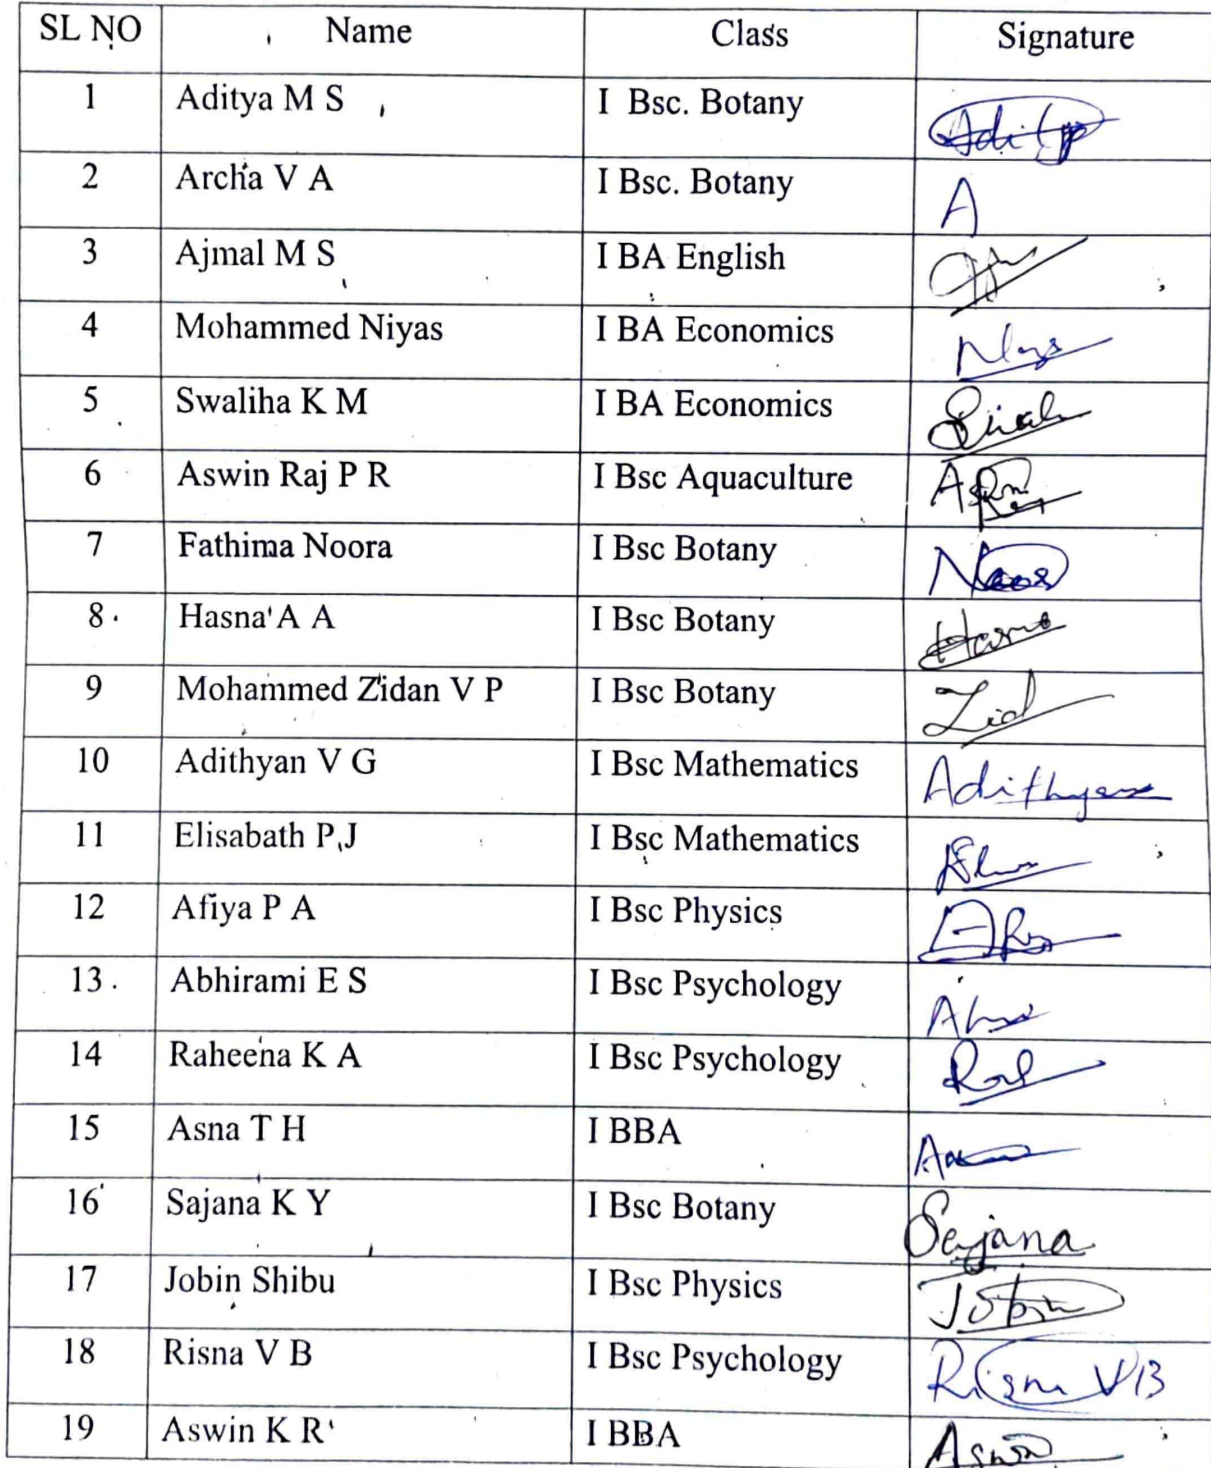 SL NO Name Class Signature
1 Aditya M S I Bsc. Botany
2 Archa V A I Bsc. Botany A
3 Ajmal M S I BA English
4 Mohammed Niyas I BA Economics
5 Swaliha K M I BA Economics
6 Aswin Raj P R I Bsc Aquaculture
7 Fathima Noora I Bsc Botany
8 Hasna A A I Bsc Botany
9 Mohammed Zidan V P I Bsc Botany Zid
10 Adithyan V G I Bsc Mathematics Adithyan
11 Elisabath P J I Bsc Mathematics
12 Afiya P A I Bsc Physics
13 Abhirami E S I Bsc Psychology
14 Raheena K A I Bsc Psychology
15 Asna T H I BBA
16 Sajana K Y I Bsc Botany Sajana
17 Jobin Shibu I Bsc Physics Jobin
18 Risna V B I Bsc Psychology Risna V B
19 Aswin K R I BBA Aswin